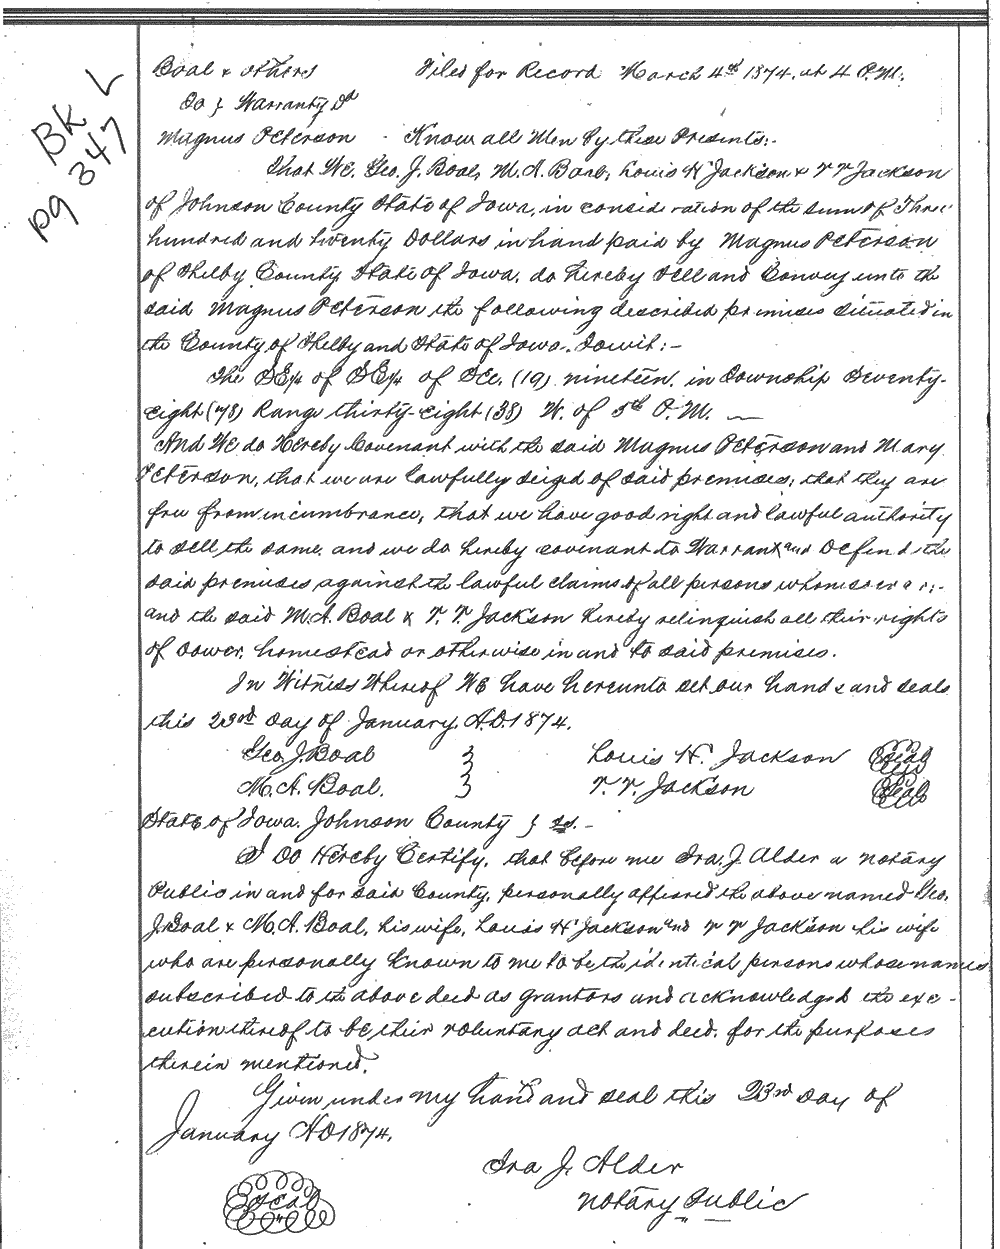 BK L
pg 347
Boal & others Filed for Record March 4th 1874, at 4 P.M.
To } Warranty Dd
Magnus Peterson Know all Men by these Presents:-
That We, Geo. J. Boal, M. A. Boal, Louis H Jackson & T T Jackson
of Johnson County State of Iowa, in consideration of the sum of Three
hundred and twenty Dollars in hand paid by Magnus Peterson
of Shelby County State of Iowa, do hereby Sell and Convey unto the
said Magnus Peterson the following described premises situated in
the County of Shelby and State of Iowa. Towit:-
The SE¼ of SE¼ of Sec. (19) nineteen, in Township Seventy-
eight (78) Range thirty-eight (38) W. of 5th P.M.
And We do Hereby Covenant with the said Magnus Peterson and Mary
Peterson, that we are lawfully seized of said premises, that they are
free from incumbrance, that we have good right and lawful authority
to sell the same, and we do hereby covenant to Warrant and Defend the
said premises against the lawful claims of all persons whomsoever:-
and the said M. A. Boal & T. T. Jackson hereby relinquish all their rights
of dower, homestead or otherwise in and to said premises.
In Witness Whereof We have hereunto set our hands and seals
this 23rd Day of January A.D. 1874.
Geo. J. Boal } Louis H. Jackson Seal
M. A. Boal. } T. T. Jackson Seal
State of Iowa. Johnson County } ss.-
I Do Hereby Certify, that before me Ira. J. Alder a notary
Public in and for said County, personally appeared the above named Geo.
J. Boal & M. A. Boal, his wife, Louis H Jackson and T T Jackson his wife
who are personally known to me to be the identical persons whose names
subscribed to the above deed as grantors and acknowledged the exe-
cution thereof to be their voluntary act and deed, for the purposes
therein mentioned.
Given under my hand and seal this 23rd Day of
January AD 1874.
Ira J. Alder
Notary Public
Seal